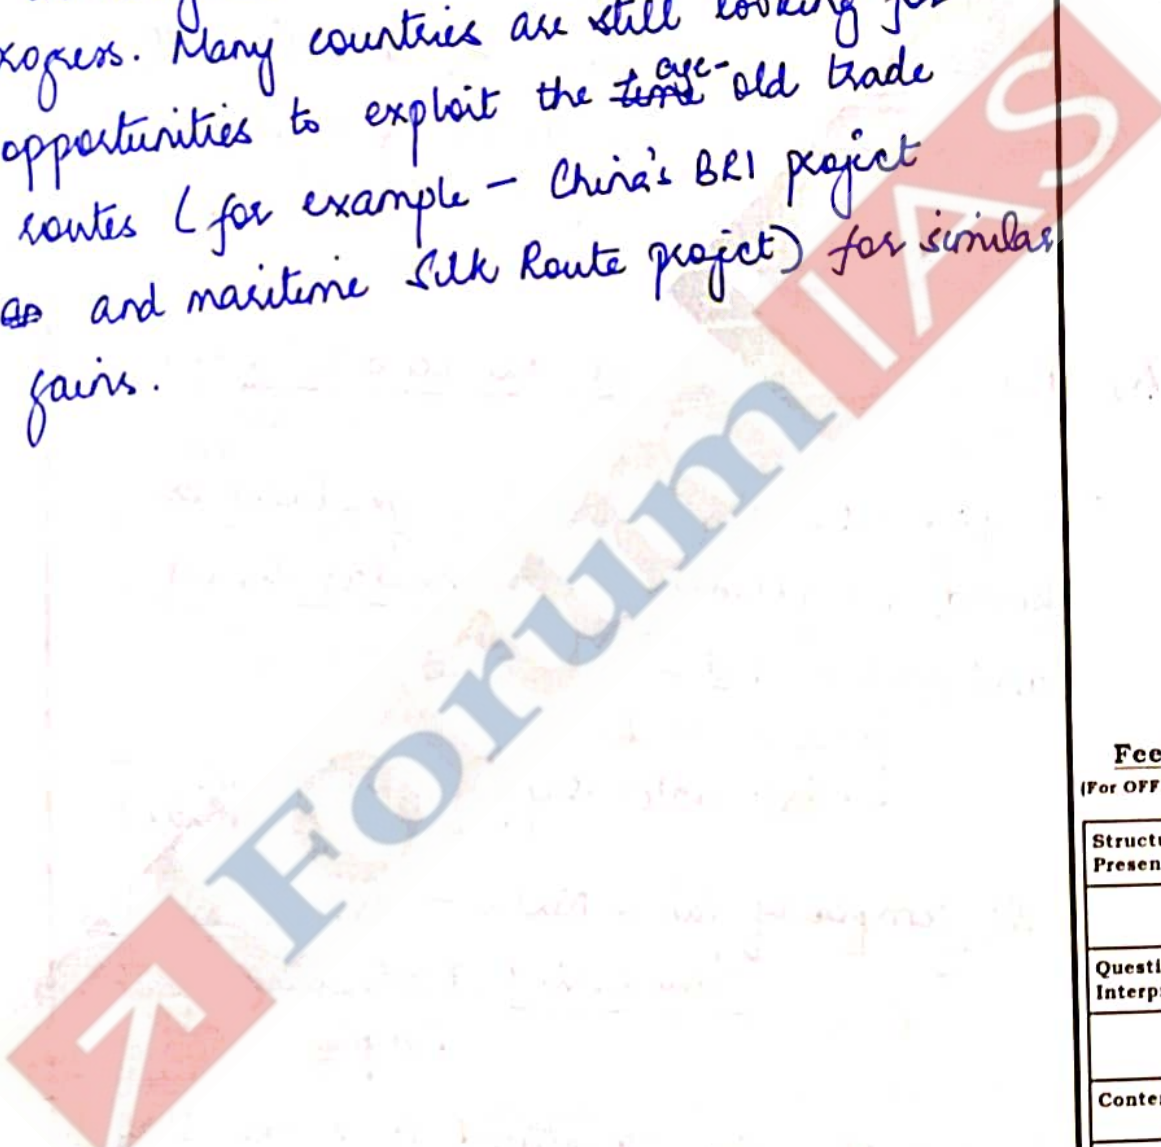 progress. Many countries are still looking for
opportunities to exploit the time age-old trade
routes (for example – China's BRI project
and maritime Silk Route project) for similar
gains.
Forum IAS
Fee
(For OFF
Structu
Presen
Questi
Interp
Conte